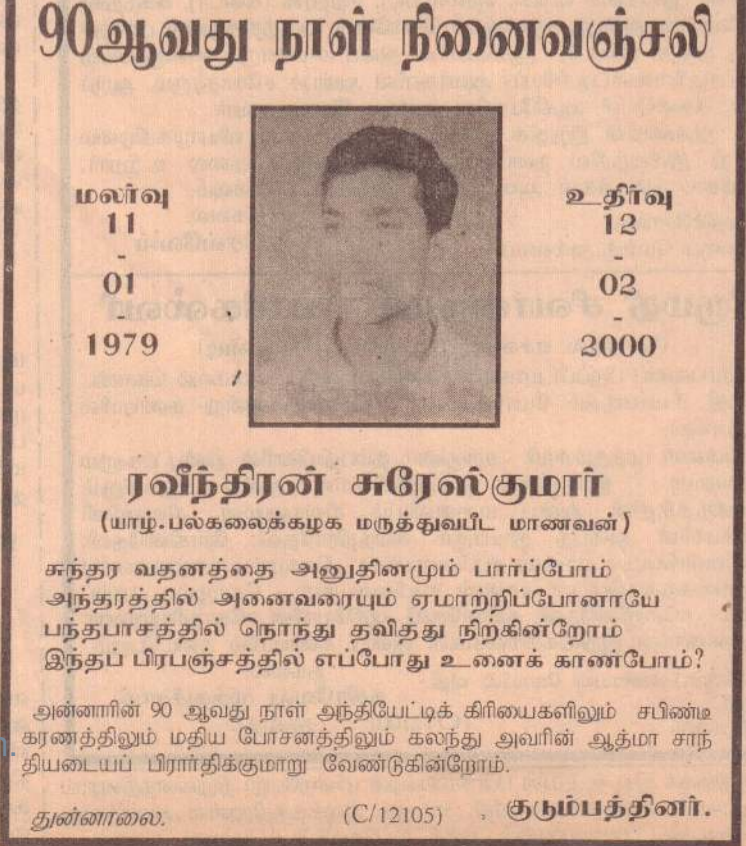 90ஆவது நாள் நினைவஞ்சலி
மலர்வு
11
-
01
-
1979
உதிர்வு
12
-
02
-
2000
ரவீந்திரன் சுரேஸ்குமார்
(யாழ்.பல்கலைக்கழக மருத்துவபீட மாணவன்)
சுந்தர வதனத்தை அனுதினமும் பார்ப்போம்
அந்தரத்தில் அனைவரையும் ஏமாற்றிப்போனாயே
பந்தபாசத்தில் நொந்து தவித்து நிற்கின்றோம்
இந்தப் பிரபஞ்சத்தில் எப்போது உனைக் காண்போம்?
அன்னாரின் 90 ஆவது நாள் அந்தியேட்டிக் கிரியைகளிலும் சபிண்டீ
கரணத்திலும் மதிய போசனத்திலும் கலந்து அவரின் ஆத்மா சாந்
தியடையப் பிரார்திக்குமாறு வேண்டுகின்றோம்.
துன்னாலை. (C/12105) குடும்பத்தினர்.